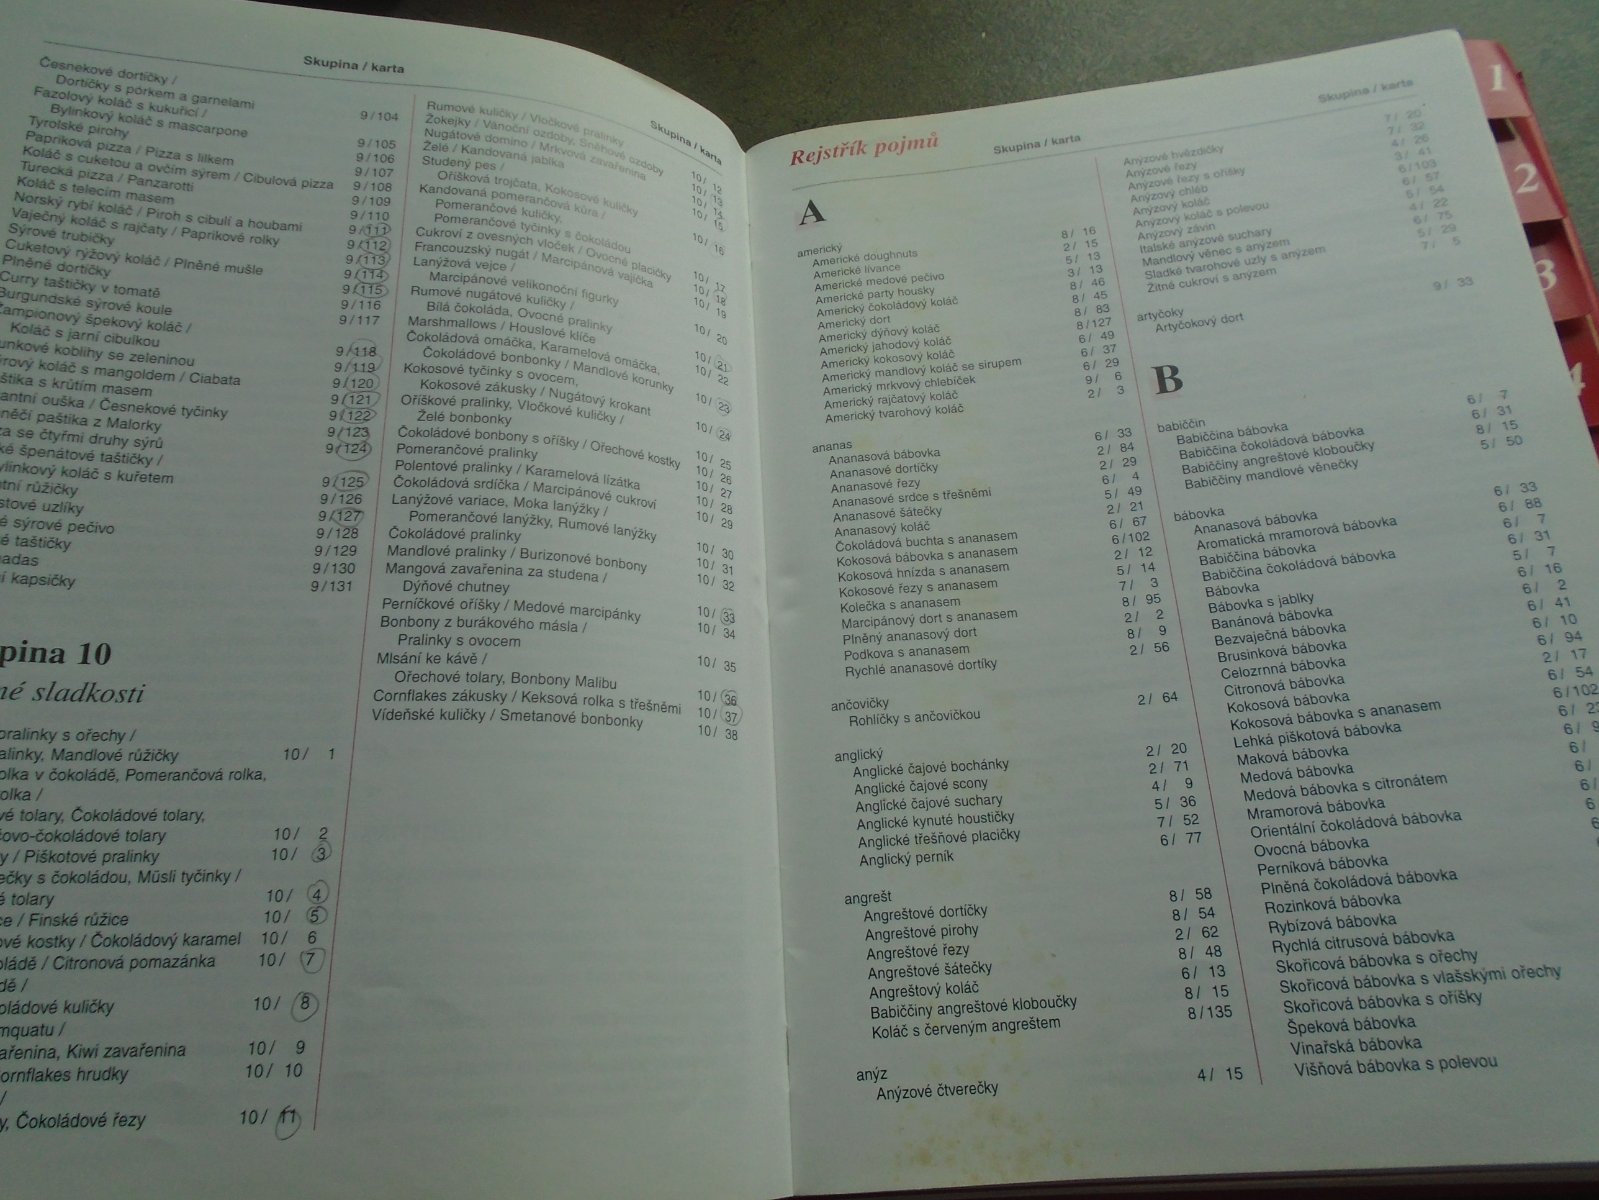 Skupina / karta
Česnekové dortíčky /
Dortíčky s pórkem a garnelami 9/104
Fazolový koláč s kukuřicí /
Bylinkový koláč s mascarpone 9/105
Tyrolské pirohy 9/106
Papriková pizza / Pizza s lilkem 9/107
Koláč s cuketou a ovčím sýrem / Cibulová pizza 9/108
Turecká pizza / Panzarotti 9/109
Koláč s telecím masem 9/110
Norský rybí koláč / Piroh s cibulí a houbami 9/111
Vaječný koláč s rajčaty / Paprikové rolky 9/112
Sýrové trubičky 9/113
Cuketový rýžový koláč / Plněné mušle 9/114
Plněné dortíčky 9/115
Curry taštičky v tomatě 9/116
Burgundské sýrové koule 9/117
Žampionový špekový koláč /
Koláč s jarní cibulkou 9/118
unkové koblihy se zeleninou 9/119
ýrový koláč s mangoldem / Ciabata 9/120
štika s krůtím masem 9/121
antní ouška / Česnekové tyčinky 9/122
něčí paštika z Malorky 9/123
za se čtyřmi druhy sýrů 9/124
ké špenátové taštičky /
ylinkový koláč s kuřetem 9/125
ntní růžičky 9/126
stové uzlíky 9/127
é sýrové pečivo 9/128
é taštičky 9/129
nadas 9/130
í kapsičky 9/131
pina 10
né sladkosti
pralinky s ořechy /
alinky, Mandlové růžičky 10/ 1
olka v čokoládě, Pomerančová rolka,
olka /
vé tolary, Čokoládové tolary,
čovo-čokoládové tolary 10/ 2
y / Piškotové pralinky 10/ 3
ečky s čokoládou, Müsli tyčinky /
é tolary 10/ 4
ce / Finské růžice 10/ 5
ové kostky / Čokoládový karamel 10/ 6
oládě / Citronová pomazánka 10/ 7
dě /
oládové kuličky 10/ 8
mquatu /
ařenina, Kiwi zavařenina 10/ 9
ornflakes hrudky 10/ 10
/
y, Čokoládové řezy 10/ 11
Skupina / karta
Rumové kuličky / Vločkové pralinky 10/ 12
Žokejky / Vánoční ozdoby, Sněhové ozdoby 10/ 13
Nugátové domino / Mrkvová zavařenina 10/ 14
Želé / Kandovaná jablka 10/ 15
Studený pes /
Oříšková trojčata, Kokosové kuličky 10/ 16
Kandovaná pomerančová kůra /
Pomerančové kuličky,
Pomerančové tyčinky s čokoládou 10/ 17
Cukroví z ovesných vloček / Ovocné placičky 10/ 18
Francouzský nugát / Marcipánová vajíčka 10/ 19
Lanýžová vejce /
Marcipánové velikonoční figurky 10/ 20
Rumové nugátové kuličky /
Bílá čokoláda, Ovocné pralinky 10/ 21
Marshmallows / Houslové klíče 10/ 22
Čokoládová omáčka, Karamelová omáčka,
Čokoládové bonbonky / Mandlové korunky 10/ 23
Kokosové tyčinky s ovocem,
Kokosové zákusky / Nugátový krokant 10/ 24
Oříškové pralinky, Vločkové kuličky /
Želé bonbonky 10/ 25
Čokoládové bonbony s oříšky / Ořechové kostky 10/ 26
Pomerančové pralinky 10/ 27
Polentové pralinky / Karamelová lízátka 10/ 28
Čokoládová srdíčka / Marcipánové cukroví 10/ 29
Lanýžové variace, Moka lanýžky /
Pomerančové lanýžky, Rumové lanýžky 10/ 30
Čokoládové pralinky 10/ 31
Mandlové pralinky / Burizonové bonbony 10/ 32
Mangová zavařenina za studena /
Dýňové chutney 10/ 33
Perníčkové oříšky / Medové marcipánky 10/ 34
Bonbony z burákového másla /
Pralinky s ovocem 10/ 35
Mlsání ke kávě /
Ořechové tolary, Bonbony Malibu 10/ 36
Cornflakes zákusky / Keksová rolka s třešněmi 10/ 37
Vídeňské kuličky / Smetanové bonbonky 10/ 38
Rejstřík pojmů
Skupina / karta
A
americký
Americké doughnuts 8/ 16
Americké lívance 2/ 15
Americké medové pečivo 5/ 13
Americké party housky 3/ 13
Americký čokoládový koláč 8/ 46
Americký dort 8/ 45
Americký dýňový koláč 8/ 83
Americký jahodový koláč 8/127
Americký kokosový koláč 6/ 49
Americký mandlový koláč se sirupem 6/ 37
Americký mrkvový chlebíček 6/ 29
Americký rajčatový koláč 9/ 6
Americký tvarohový koláč 2/ 3
ananas
Ananasová bábovka 6/ 33
Ananasové dortíčky 2/ 84
Ananasové řezy 2/ 29
Ananasové srdce s třešněmi 6/ 4
Ananasové šátečky 5/ 49
Ananasový koláč 2/ 21
Čokoládová buchta s ananasem 6/ 67
Kokosová bábovka s ananasem 6/102
Kokosová hnízda s ananasem 2/ 12
Kokosové řezy s ananasem 5/ 14
Kolečka s ananasem 7/ 3
Marcipánový dort s ananasem 8/ 95
Plněný ananasový dort 2/ 2
Podkova s ananasem 8/ 9
Rychlé ananasové dortíky 2/ 56
ančovičky
Rohlíčky s ančovičkou 2/ 64
anglický
Anglické čajové bochánky 2/ 20
Anglické čajové scony 2/ 71
Anglické čajové suchary 4/ 9
Anglické kynuté houstičky 5/ 36
Anglické třešňové placičky 7/ 52
Anglický perník 6/ 77
angrešt
Angreštové dortíčky 8/ 58
Angreštové pirohy 8/ 54
Angreštové řezy 2/ 62
Angreštové šátečky 8/ 48
Angreštový koláč 6/ 13
Babiččiny angreštové kloboučky 8/ 15
Koláč s červeným angreštem 8/135
anýz
Anýzové čtverečky 4/ 15
Skupina / karta
Anýzové hvězdičky 7/ 20
Anýzové řezy 7/ 32
Anýzové řezy s oříšky 4/ 26
Anýzový chléb 3/ 41
Anýzový koláč 6/103
Anýzový koláč s polevou 6/ 57
Anýzový závin 5/ 54
Italské anýzové suchary 4/ 22
Mandlový věnec s anýzem 6/ 75
Sladké tvarohové uzly s anýzem 5/ 29
Žitné cukroví s anýzem 7/ 5
artyčoky
Artyčokový dort 9/ 33
B
babiččin
Babiččina bábovka 6/ 7
Babiččina čokoládová bábovka 6/ 31
Babiččiny angreštové kloboučky 8/ 15
Babiččiny mandlové věnečky 5/ 50
bábovka
Ananasová bábovka 6/ 33
Aromatická mramorová bábovka 6/ 88
Babiččina bábovka 6/ 7
Babiččina čokoládová bábovka 6/ 31
Bábovka 5/ 7
Bábovka s jablky 6/ 16
Banánová bábovka 6/ 2
Bezvaječná bábovka 6/ 41
Brusinková bábovka 6/ 10
Celozrnná bábovka 6/ 94
Citronová bábovka 2/ 17
Kokosová bábovka 6/ 54
Kokosová bábovka s ananasem 6/102
Lehká piškotová bábovka 6/
Maková bábovka 6/
Medová bábovka 6/
Medová bábovka s citronátem 6/
Mramorová bábovka 6/
Orientální čokoládová bábovka 6
Ovocná bábovka
Perníková bábovka
Plněná čokoládová bábovka
Rozinková bábovka
Rybízová bábovka
Rychlá citrusová bábovka
Skořicová bábovka s ořechy
Skořicová bábovka s vlašskými ořechy
Skořicová bábovka s oříšky
Špeková bábovka
Vinařská bábovka
Višňová bábovka s polevou
1
2
3
4